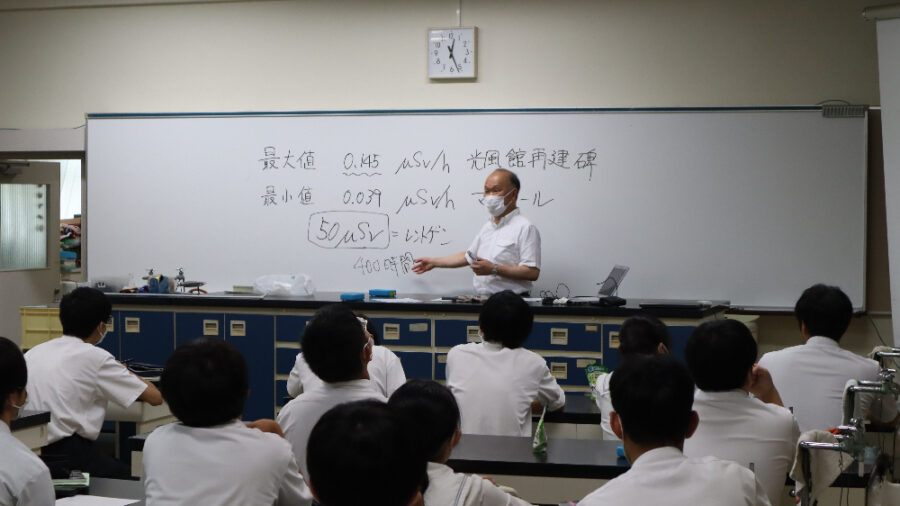 最大値 0.145 μSv/h 光風館再建碑
最小値 0.039 μSv/h ール
50μSv =レントゲン
400時間